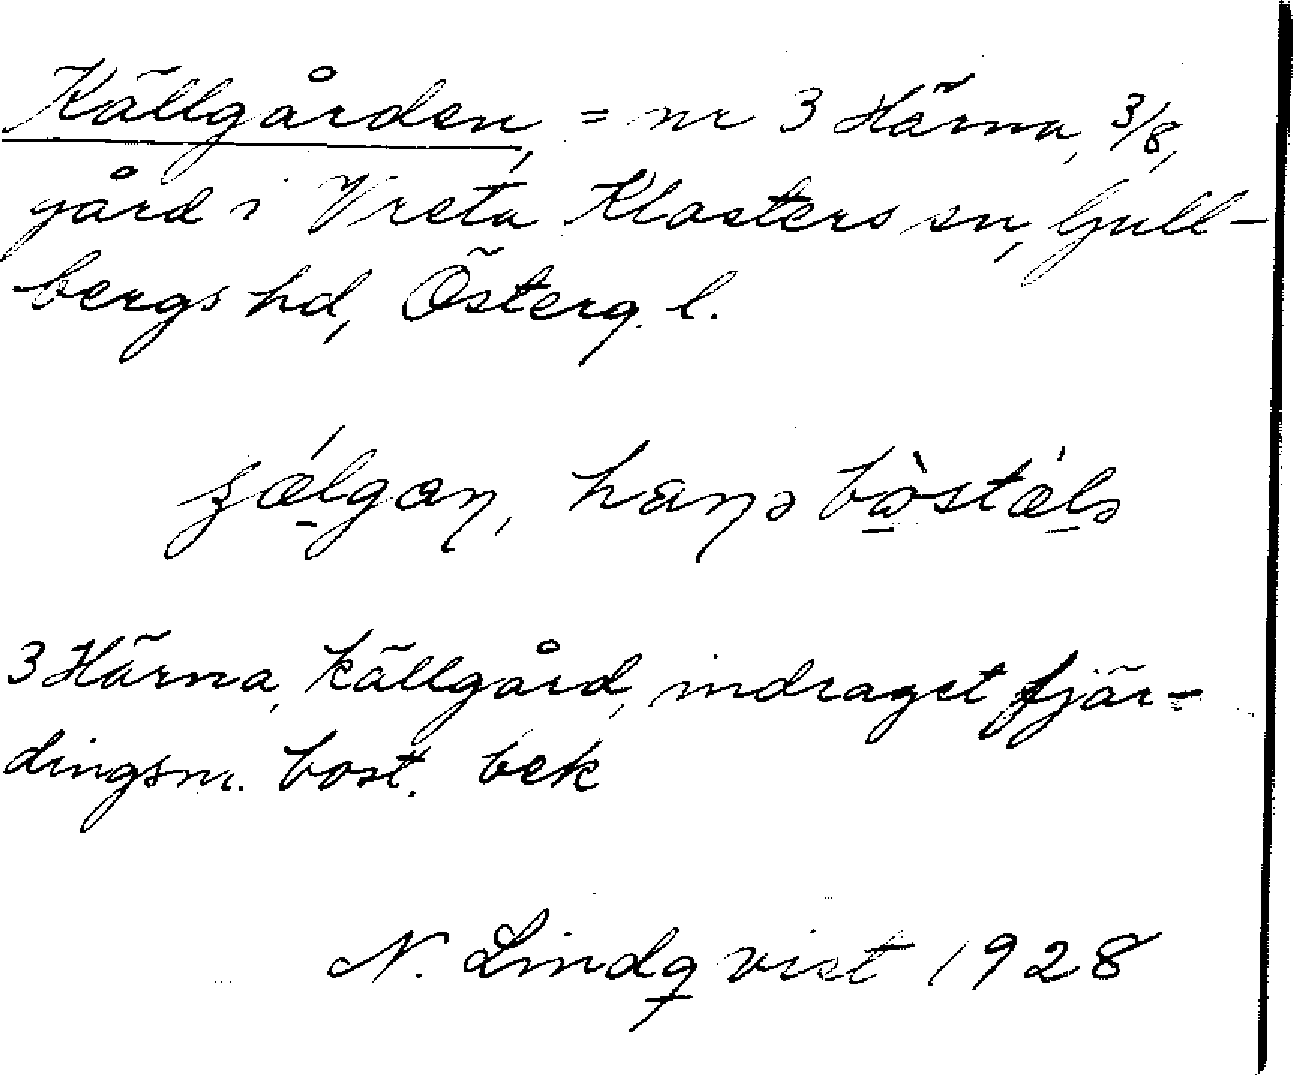 Källgården, = nr 3 Härna, 3/8,
gård i Vreta Klosters sn, Gull-
bergs hd, Österg. l.
3 Härna, källgård, indraget fjär-
dingsm. bost. bek
N. Lindqvist 1928